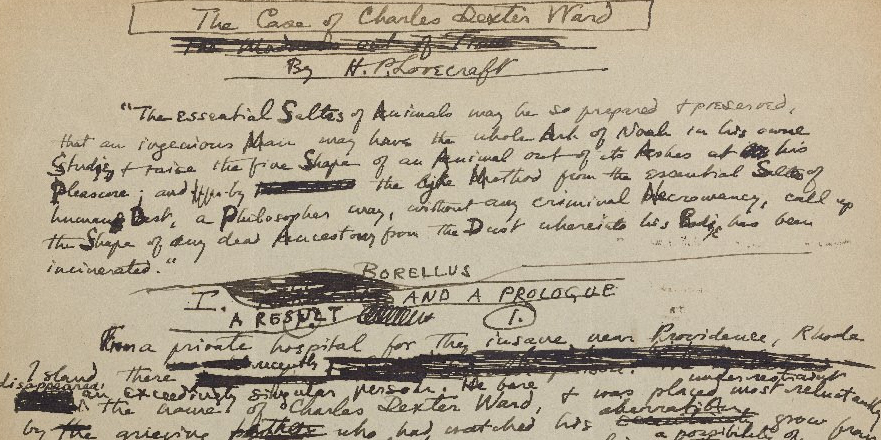 The Case of Charles Dexter Ward
By H. P. Lovecraft
"The essential Saltes of Animals may be so prepared & preserved,
that an ingenious Man may have the whole Ark of Noah in his owne
Studie, & raise the fine Shape of an Animal out of its Ashes at his
Pleasure; and by the lyke Method from the essential Saltes of
humane Dust, a Philosopher may, without any criminal Necromancy, call up
the Shape of any dead Ancestour from the Dust whereinto his Bodie has been
incinerated."
BORELLUS
I. A RESULT AND A PROLOGUE
1.
From a private hospital for the insane, near Providence, Rhode
Island there recently
disappeared an exceedingly singular person. He bore
the name of Charles Dexter Ward, & was placed under restraint most reluctantly
by the grieving father who had watched his aberration grow from
a possibility of